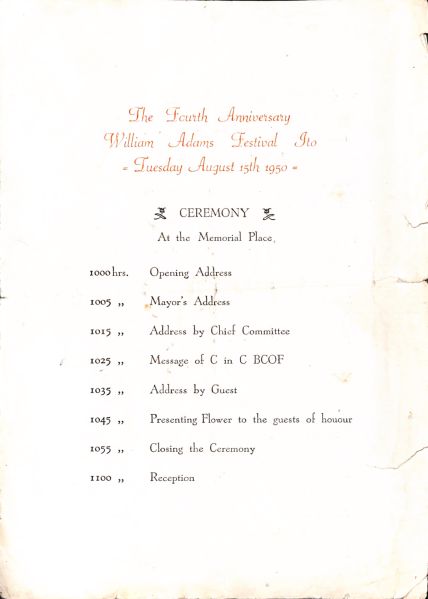 The Fourth Anniversary
William Adams Festival Ito
= Tuesday August 15th 1950 =
CEREMONY
At the Memorial Place,
1000 hrs. Opening Address
1005 ,, Mayor's Address
1015 ,, Address by Chief Committee
1025 ,, Message of C in C BCOF
1035 ,, Address by Guest
1045 ,, Presenting Flower to the guests of houour
1055 ,, Closing the Ceremony
1100 ,, Reception